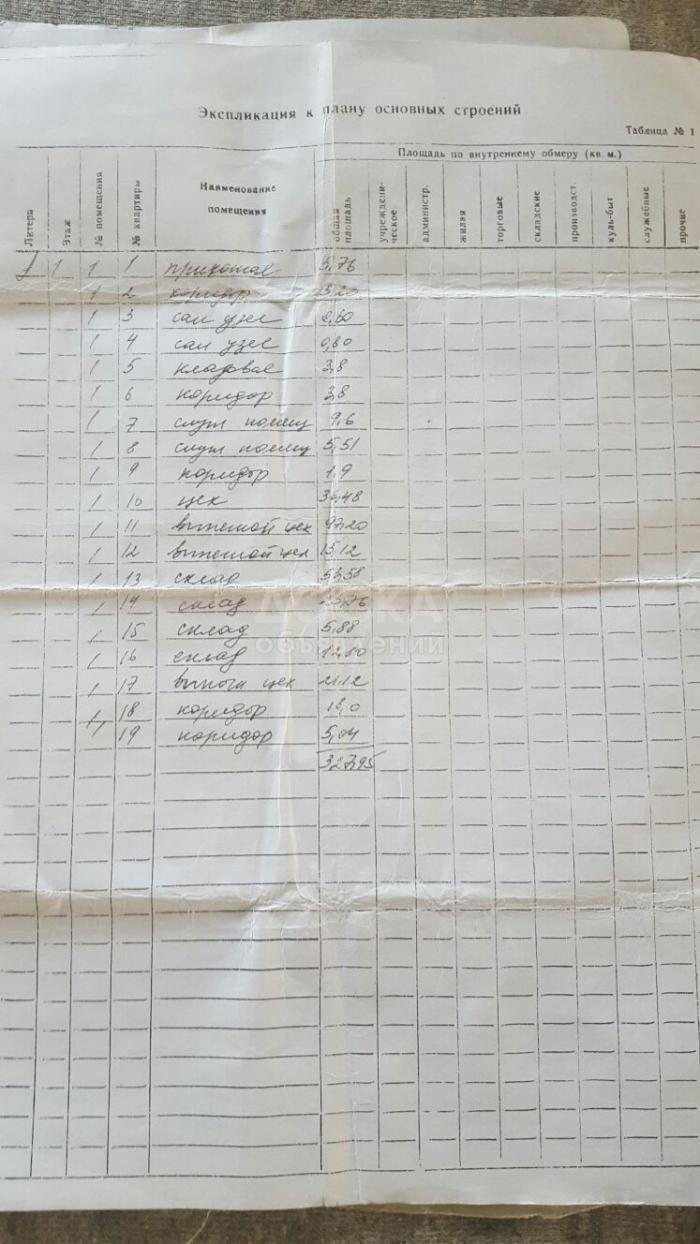 Экспликация к плану основных строений
Таблица № 1
Литера
Этаж
№ помещения
№ квартиры
Наименование помещения
Площадь по внутреннему обмеру (кв. м.)
общая площадь
учреждени-ческое
администр.
жилая
торговые
складские
производст.
куль-быт
служебные
прочие
1 1 1 прихожая 5,76
1 2 коридор 3,20
1 3 сан узел 0,80
1 4 сан узел 0,80
1 5 кладовая 3,8
1 6 коридор 3,8
1 7 служ помещ 9,6
1 8 служ помещ 5,51
1 9 коридор 1,9
1 10 цех
1 11 цех 97,20
1 12 15,12
1 13 склад 53,58
1 14 склад
1 15 склад 5,88
1 16 склад
1 17 цех 21,12
1 18 коридор
19 коридор 5,04
327,95
ДОСКА
объявлений